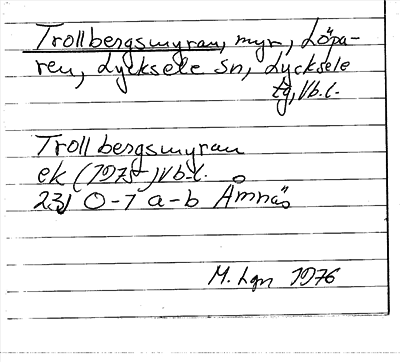 Trollbergsmyran, myr, Löpa-
ren, Lycksele sn, Lycksele
tg, Vb.l.
Trollbergsmyran
ek (1975) Vb.l.
23J 0-1 a-b Åmnäs
M. Lgn 1976